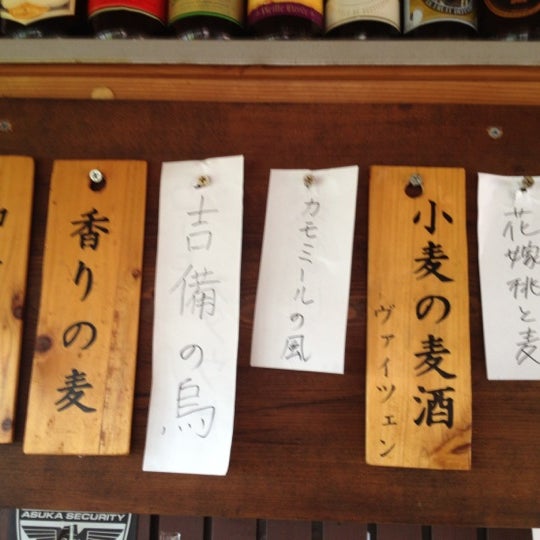 香りの麦
吉備の烏
カモミールの風
小麦の麦酒
ヴァイツェン
花嫁桃と麦
ASUKA SECURITY